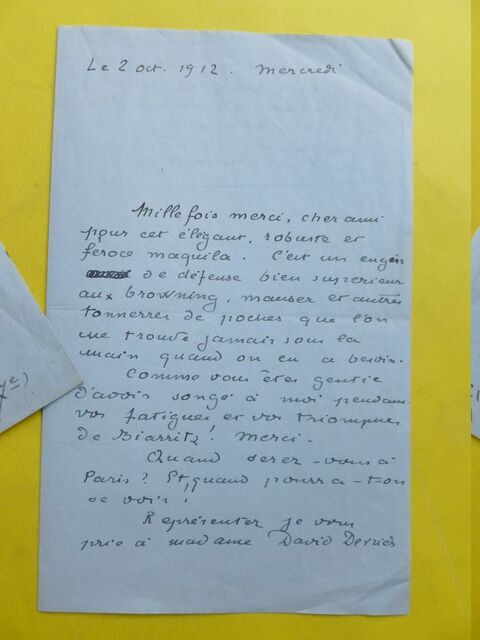 Le 2 oct. 1912. Mercredi
Mille fois merci, cher ami
pour cet élégant, robuste et
féroce maquila. C'est un engin
de défense bien supérieur
aux browning, mauser et autres
tonnerres de poches que l'on
ne trouve jamais sous la
main quand on en a besoin.
Comme vous êtes gentil
d'avoir songé à moi pendant
vos fatigues et vos triomphes
de Biarritz! Merci.
Quand serez-vous à
Paris? Et quand pourra-t-on
se voir!
Représenter je vous
prie à madame David Devriès